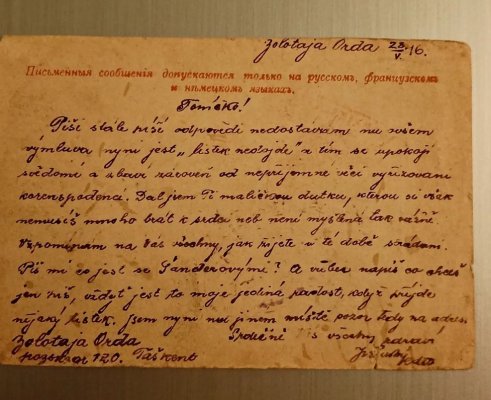 Zolotaja Orda 23/V. 16.
Письменныя сообщенія допускаются только на русскомъ, французскомъ
и нѣмецкомъ языкахъ.
Píši stále píši odpovědi nedostávám nu ovšem
výmluva nyní jest „lístek nedojde" a tím se upokojí
svědomí a zbaví zároveň od nepříjemné věci vyřizování
korespondence. Dal jsem Ti maličkou dutku, kterou si však
nemusíš mnoho brát k srdci neb není myšlena tak vážně.
Vzpomínám na Vás všechny, jak žijete v té době strádání.
Piš mi co jest se Šanderovými? A vůbec napiš co chceš
jen piš, vždyť jest to moje jediná radost, když přijde
nějaký lístek. Jsem nyní na jiném místě pozor tedy na adresu
Zolotaja Orda Srdečně Vás všechny zdraví
120. Taškent